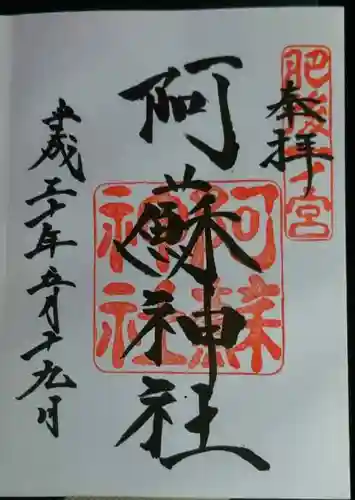 肥後一宮
奉拝
阿蘇神社
阿蘇神社
平成三十年五月十九日